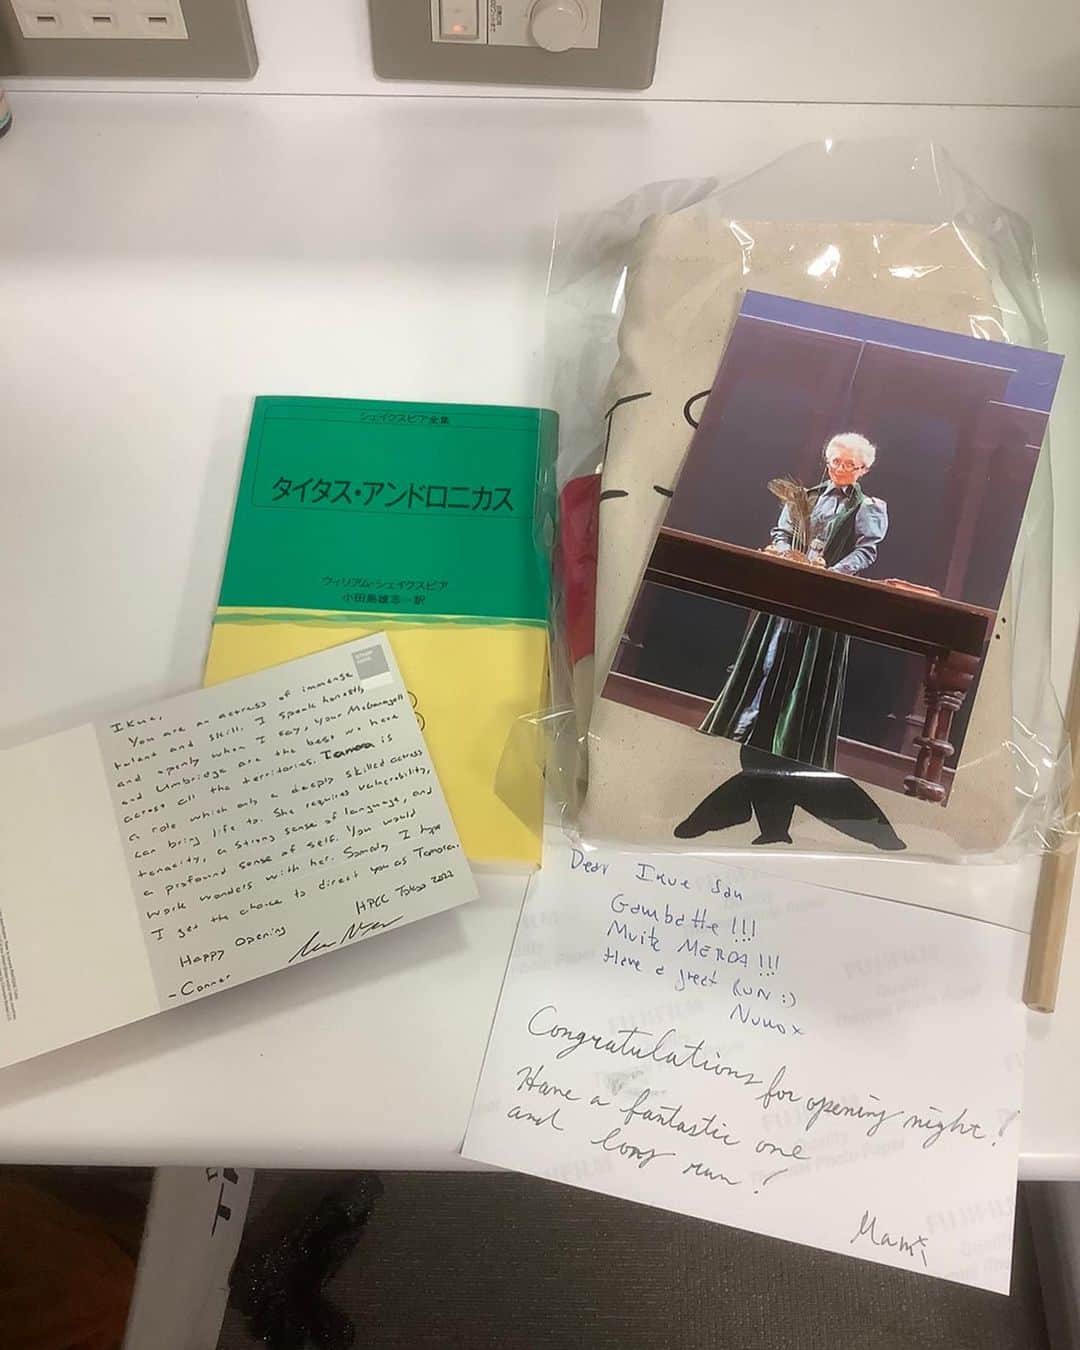 シェイクスピア全集
タイタス・アンドロニカス
ウィリアム・シェイクスピア
小田島雄志=訳
Ikue,
You are an actress of immense
talent and skill. I speak honestly
and openly when I say, your McGonagall
and Umbridge are the best we have here
across all the territories. Tamora is
a role which only a deeply skilled actress
can bring life to. She requires vulnerability,
tenacity, a strong sense of language, and
a profound sense of self. You would
work wonders with her. Someday I hope
I get the choice to direct you as Tamora.
Happy Opening
HPCC Tokyo 2022
-Connor
Dear Ikue San
Gambatte!!!
Muita MERDA!!!
Have a great RUN :)
Nuno x
Congratulations for opening night!
Have a fantastic one
and long run!
Mami
FUJIFILM
Quality
Thermal Photo Paper